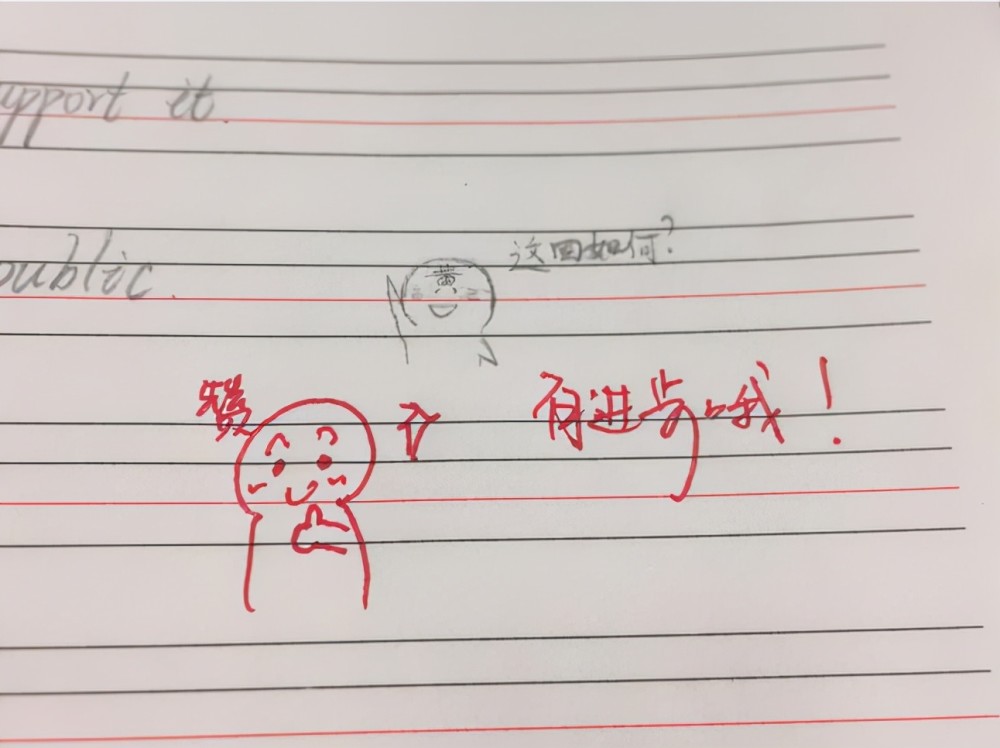 upport it.
这回如何?
public.
黄
赞
有进步哦!